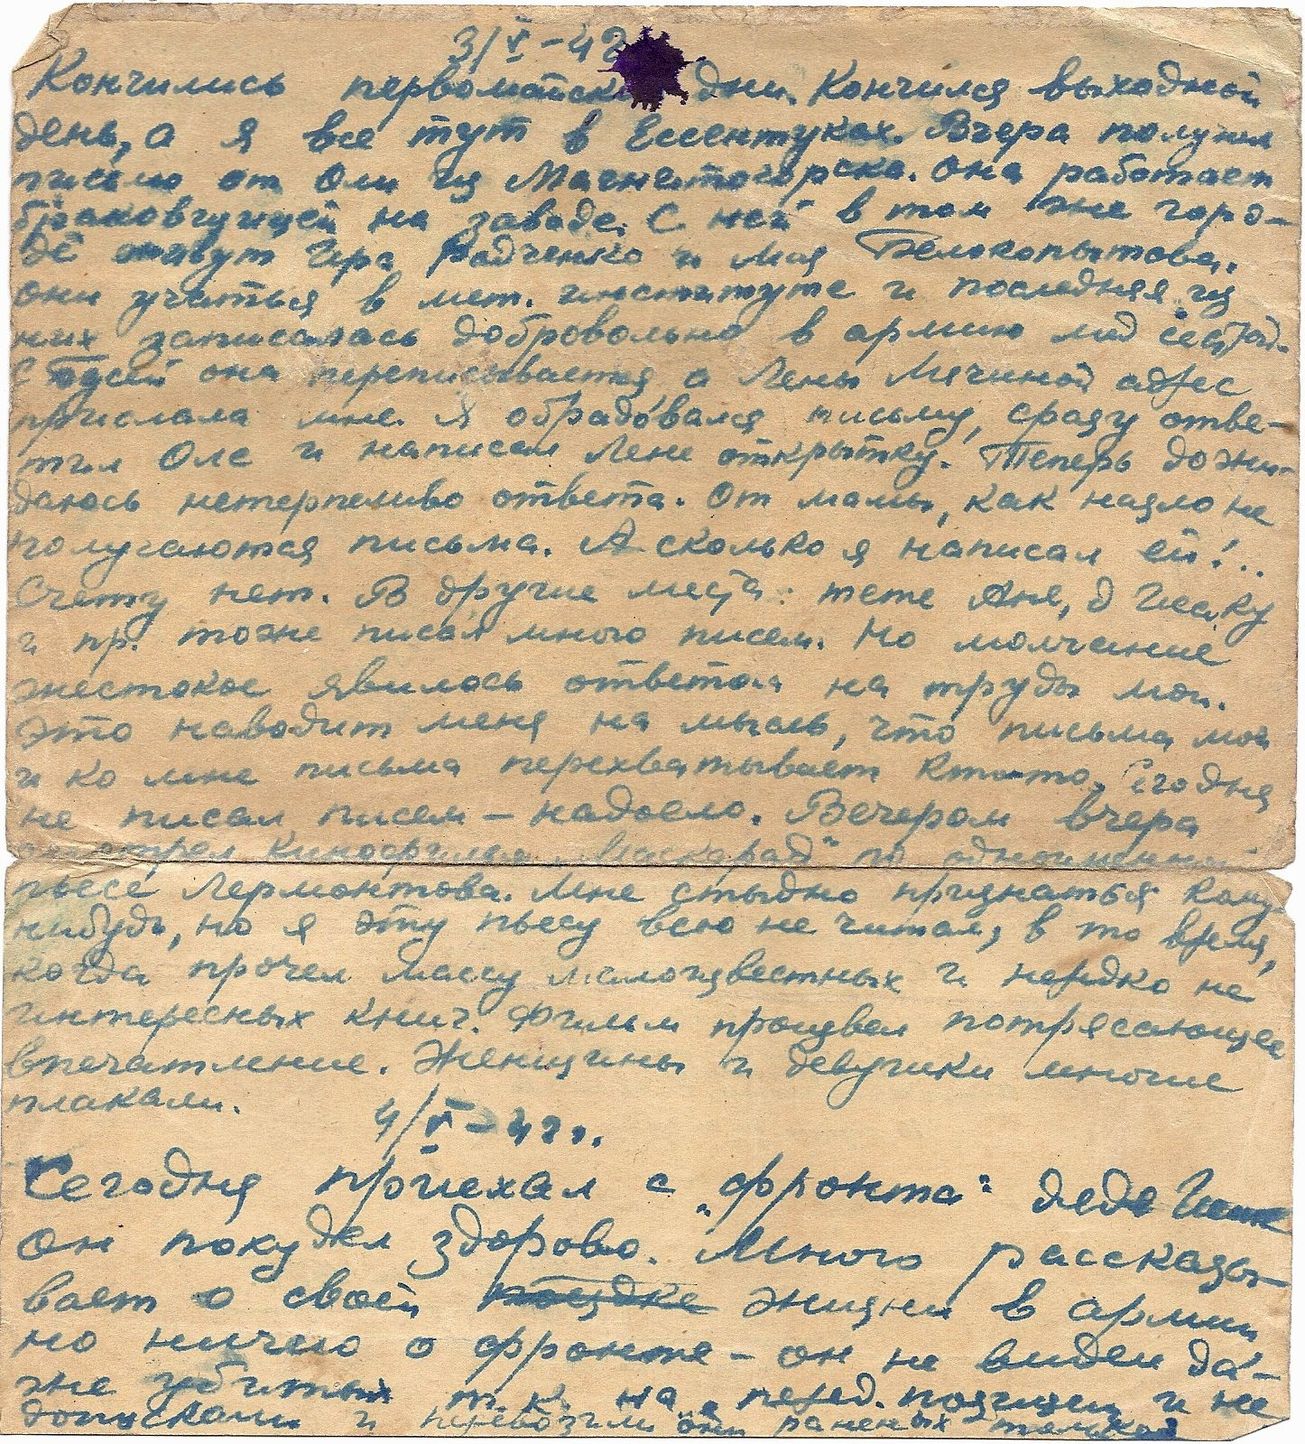 3/V-42
Кончились первомайские дни. Кончился выходной
день, а я все тут в Ессентуках. Вчера получил
письмо от Оли из Магнитогорска. Она работает
браковщицей на заводе. С ней в том же горо-
де живут Ира Радченко и Мия Белокопытова.
они учаться в мет. институте и последняя из
них записалась добровольно в армию мед сест
С она переписывается, а Лены Мячиной адрес
прислала мне. Я обрадовался письму, сразу отве-
тил Оле и написал Лене открытку. Теперь дожи-
даюсь нетерпеливо ответа. От мамы, как назло не
получаются письма. А сколько я написал ей!..
Счету нет. В другие места: тете Ане, д Исааку
и пр. тоже писал много писем. Но молчание
жестокое явилось ответом на труды мои.
Это наводит меня на мысль, что письма мои
и ко мне письма перехватывает кто-то. Сегодня
не писал писем – надоело. Вечером вчера
смотрел кинофильм „Маскарад" по одноименной
пьесе Лермонтова. Мне стыдно признаться кому
нибудь, но я эту пьесу всю не читал, в то время,
когда прочел массу малоизвестных и нередко не
интересных книг. Фильм произвел потрясающее
впечатление. Женщины и девушки многие
плакали.
4/V-42г.
Сегодня приехал с „фронта" дядя
Он похудел здорово. Много рассказы-
вает о своей поездке жизни в армии
но ничего о фронте – он не видел да-
же убитых т.к. на перед. позиции и не
допускали и перевозили они раненых